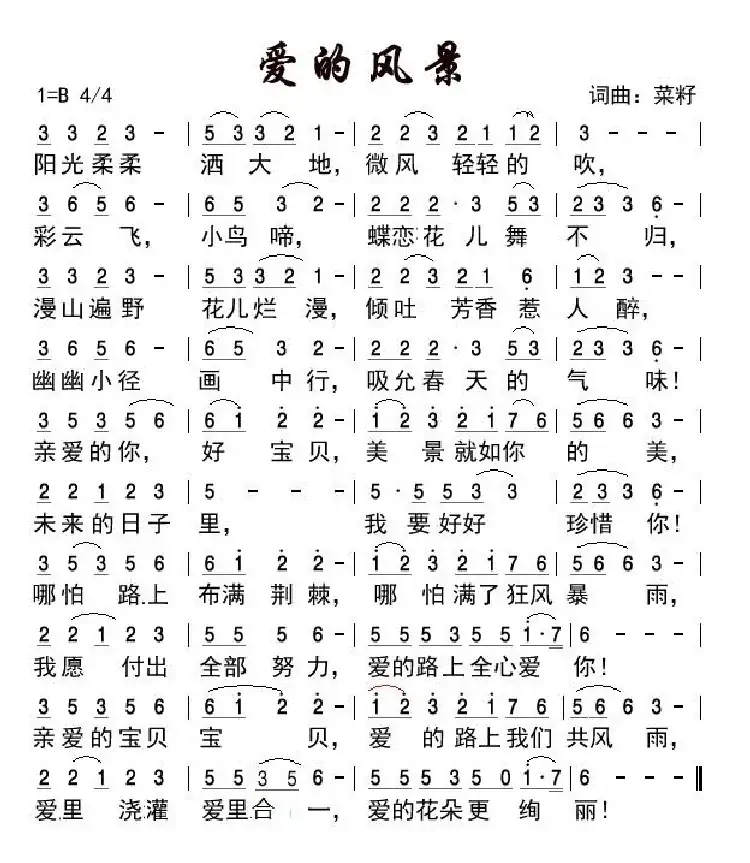 爱的风景
1=B 4/4 词曲：菜籽
3 3 2 3 - | 5 3 3 2 1 - | 2 2 3 2 1 1 2 | 3 - - - |
阳光柔柔 洒大地，微风轻轻的吹，
3 6 5 6 - | 6 5 3 2 - | 2 2 2· 3 5 3 | 2 3 3 6 - |
彩云飞，小鸟啼，蝶恋花儿舞不归，
3 3 2 3 - | 5 5 3 3 2 1 - | 2 2 3 2 1 6 | 1 2 3 - - |
漫山遍野 花儿烂漫，倾吐芳香惹人醉，
3 6 5 6 - | 6 5 3 2 - | 2 2 2· 3 5 3 | 2 3 3 6 - |
幽幽小径 画中行，吸允春天的气味！
3 5 3 5 6 | 6 1 2 2 - | 1 2 3 2 1 7 6 | 5 6 6 3 - |
亲爱的你，好宝贝，美景就如你的美，
2 2 1 2 3 | 5 - - - | 5· 5 5 3 3 | 2 3 3 6 - |
未来的日子里，我要好好珍惜你！
3 5 3 5 6 | 6 1 2 2 - | 1 2 3 2 1 7 6 | 5 6 6 3 - |
哪怕路上布满荆棘，哪怕满了狂风暴雨，
2 2 1 2 3 | 5 5 5 6 - | 5 5 5 3 5 5 1·7 | 6 - - - |
我愿付出全部努力，爱的路上全心爱你！
3 5 3 5 6 | 6 1 2 2 - | 1 2 3 2 1 7 6 | 5 6 6 3 - |
亲爱的宝贝宝贝，爱的路上我们共风雨，
2 2 1 2 3 | 5 5 3 5 6 - | 5 5 5 3 5 0 1·7 | 6 - - - ‖
爱里浇灌爱里合一，爱的花朵更绚丽！